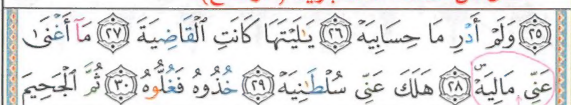 ٢٥ وَلَمْ أَدْرِ مَا حِسَابِيَهْ ٢٦ يَٰلَيْتَهَا كَانَتِ ٱلْقَاضِيَةَ ٢٧ مَآ أَغْنَىٰ
عَنِّى مَالِيَهْۜ ٢٨ هَلَكَ عَنِّى سُلْطَٰنِيَهْ ٢٩ خُذُوهُ فَغُلُّوهُ ٣٠ ثُمَّ ٱلْجَحِيمَ